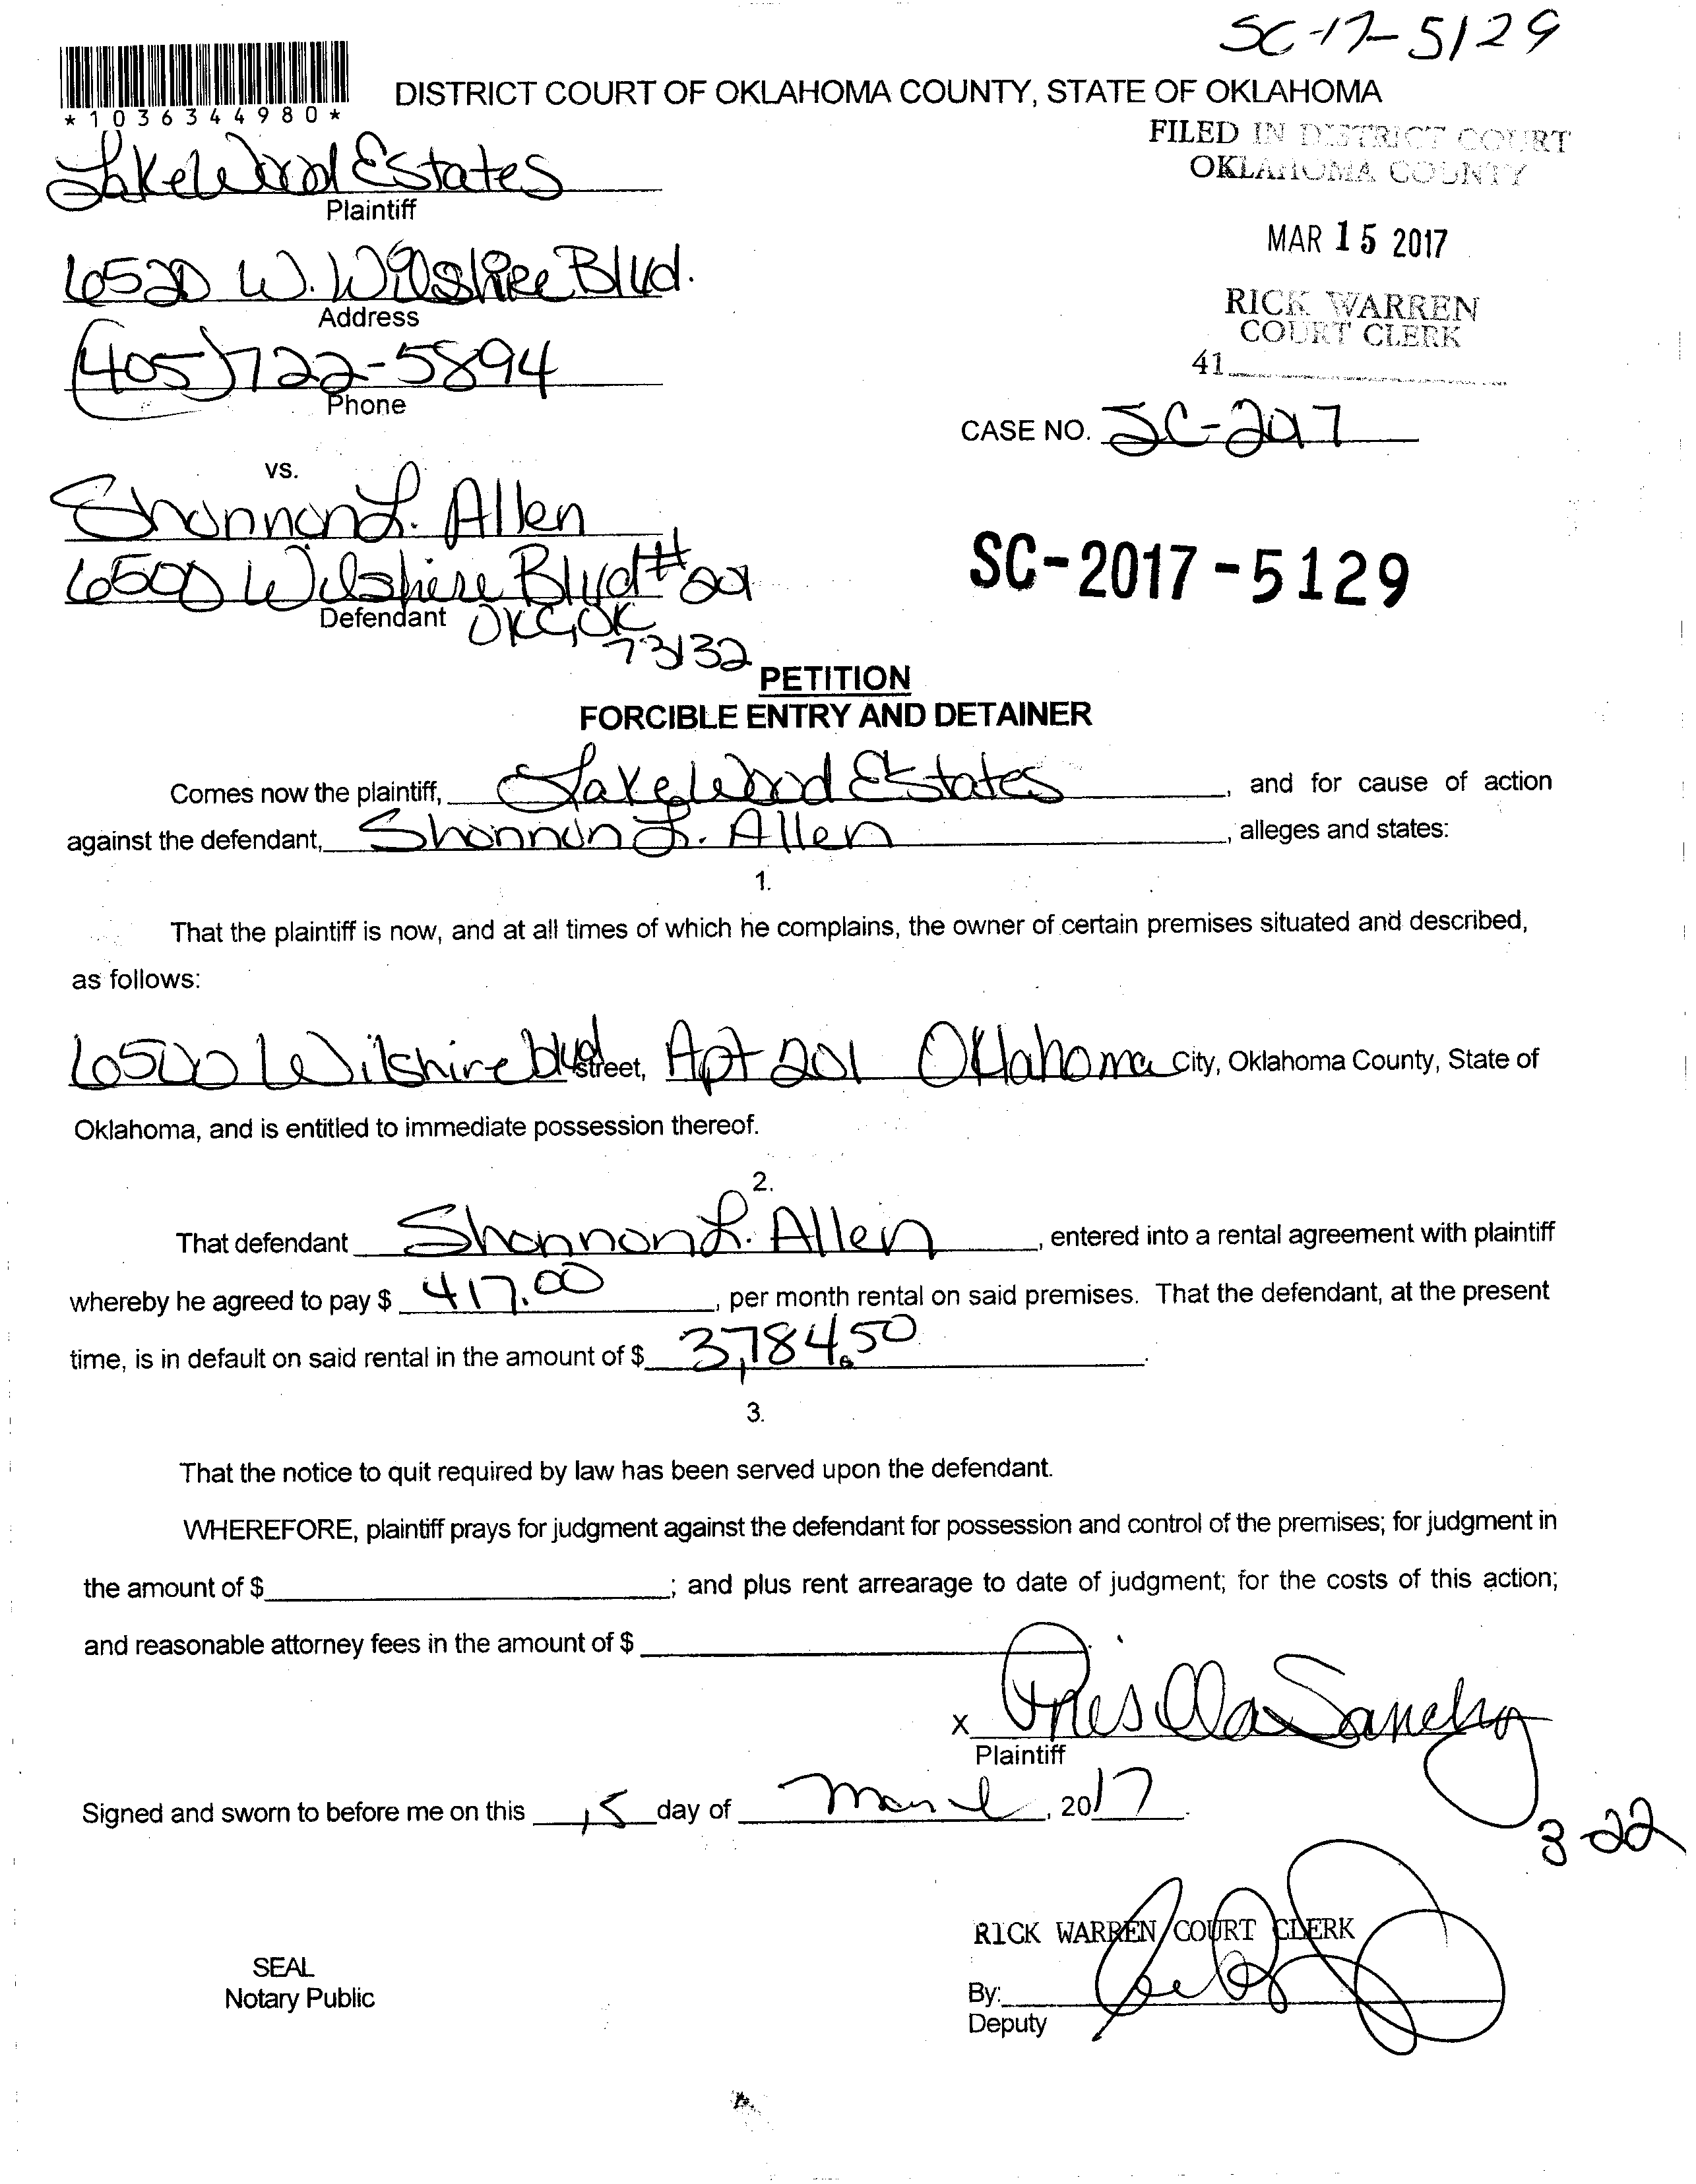 SC-17-5129
*1036344980*
DISTRICT COURT OF OKLAHOMA COUNTY, STATE OF OKLAHOMA
FILED IN DISTRICT COURT
OKLAHOMA COUNTY
MAR 15 2017
RICK WARREN
COURT CLERK
41
Lakewood Estates
Plaintiff
6520 W. Wilshire Blvd.
Address
(405)722-5894
Phone
CASE NO. SC-2017
vs.
Shannon L. Allen
6500 Wilshire Blvd # 201
Defendant OKC, OK
73132
SC-2017-5129
PETITION
FORCIBLE ENTRY AND DETAINER
Comes now the plaintiff, Lakewood Estates, and for cause of action
against the defendant, Shannon L. Allen, alleges and states:
1.
That the plaintiff is now, and at all times of which he complains, the owner of certain premises situated and described,
as follows:
6500 Wilshire blvd street, Apt 201 Oklahoma City, Oklahoma County, State of
Oklahoma, and is entitled to immediate possession thereof.
2.
That defendant Shannon L. Allen, entered into a rental agreement with plaintiff
whereby he agreed to pay $ 417.00, per month rental on said premises. That the defendant, at the present
time, is in default on said rental in the amount of $ 3,784.50.
3.
That the notice to quit required by law has been served upon the defendant.
WHEREFORE, plaintiff prays for judgment against the defendant for possession and control of the premises; for judgment in
the amount of $; and plus rent arrearage to date of judgment; for the costs of this action;
and reasonable attorney fees in the amount of $
x Prisilla Sanchez
Plaintiff
Signed and sworn to before me on this 15 day of March, 2017.
3-22
RICK WARREN COURT CLERK
SEAL
Notary Public
By:
Deputy